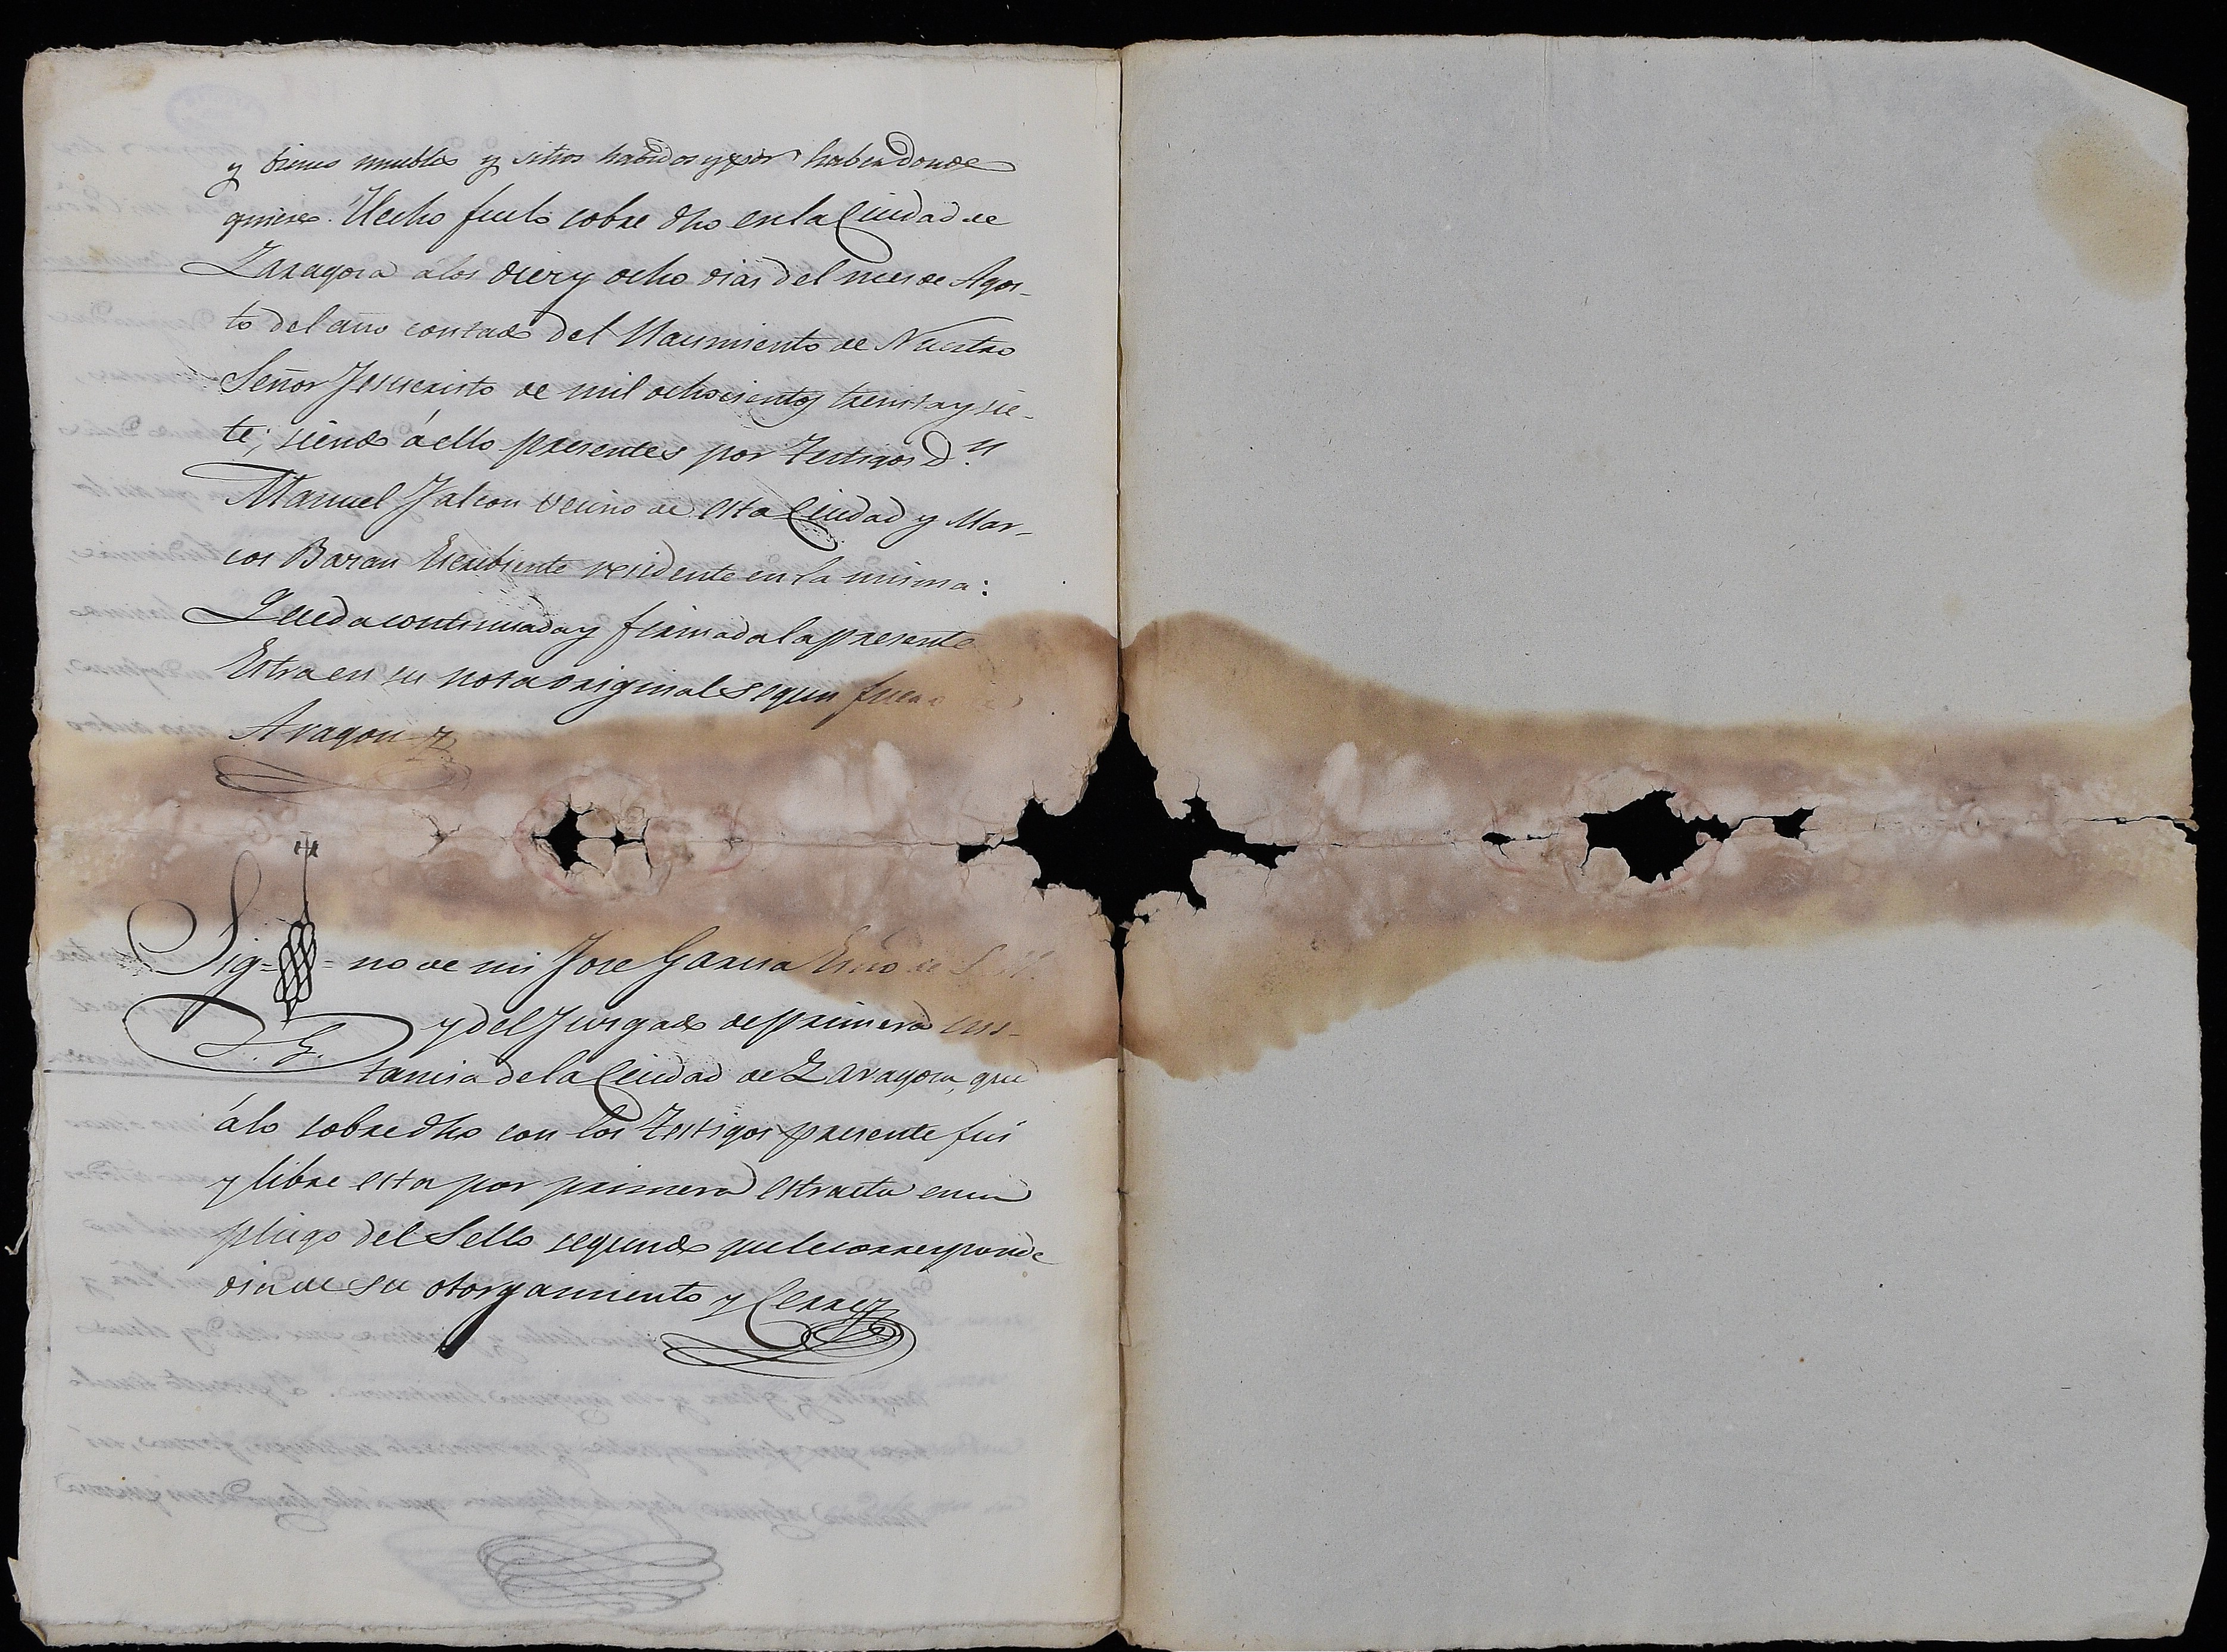 y bienes muebles y sitios habidos y por haber donde
quiere. Hecho fue lo sobre dho en la Ciudad de
Zaragoza á los diez y ocho dias del mes de Agos-
to del año contado del Nacimiento de Nuestro
Señor Jesucristo de mil ochocientos treinta y sie-
te; siendo á ello presentes por Testigos D.n
Manuel Falcon vecino de esta Ciudad y Mar-
cos Bazan Escribiente residente en la misma:
Queda continuada y firmada la presente
Estra en su nota original segun fuero
Aragon
Sig= =no de mi Jose Garcia Esno de S. M.
y del Juzgado de primera ins-
S. G.
tancia de la Ciudad de Zaragoza, que
á lo sobredho con los Testigos presente fui
y libre esta por primera estracta en un
pliego del Sello segundo que le corresponde
dia de su otorgamiento y Cerre